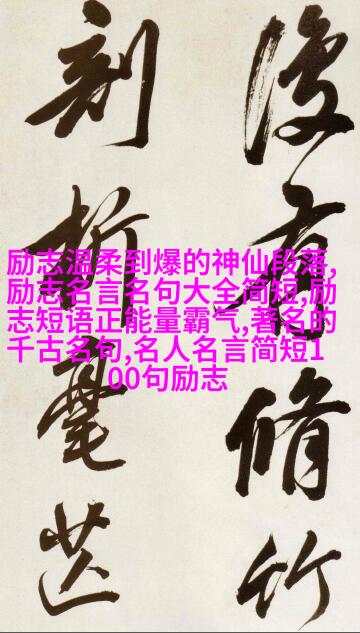 有脩竹
析毫
励志温柔到爆的神仙段落,
励志名言名句大全简短,励
志短语正能量霸气,著名的
千古名句,名人名言简短1
00句励志